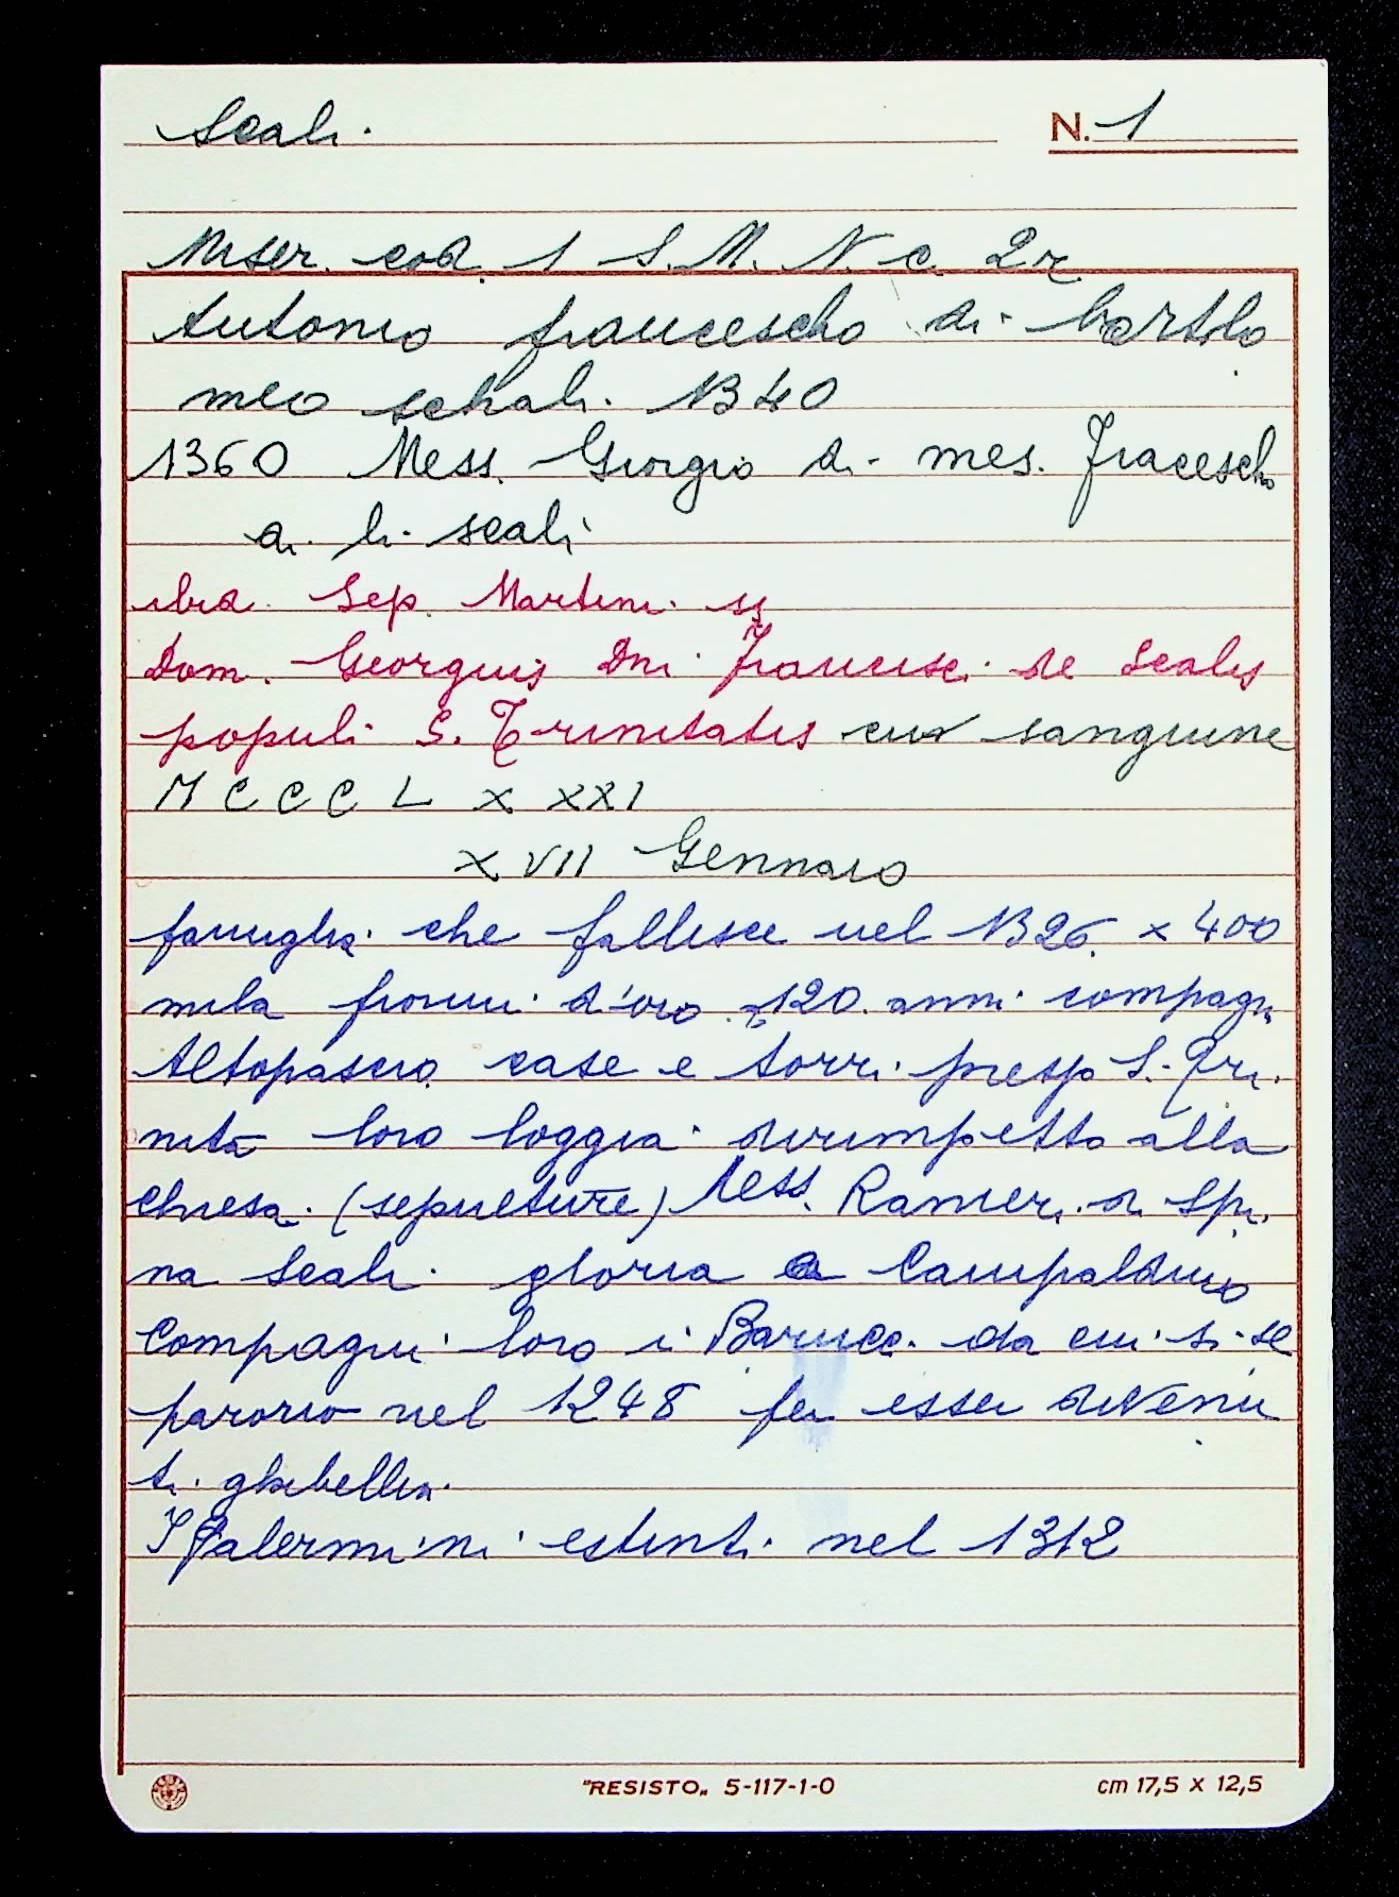 Scali. N. 1
Mser. cod. 1 S. M. N. c. 2r
Antonio francescho di bartolo
meo schali. 1340
1360 Mess. Giorgio di mes. Fracescho
di li scali
ibid. Sep. Martini
Dom. Georgius Dni francisci de Scalis
populi S. Trinitatis cum sanguine
M C C C L X XXI
XVII Gennaio
famiglia che fallisce nel 1326. x 400
mila fiorini d'oro 120 anni compagn
Altopascio case e torri presso S. Tri.
nità loro loggia dirimpetto alla
chiesa. (sepulture) Mess. Ranieri di Spi.
na Scali gloria a Campaldino
Compagni loro i Barucci da cui si se
pararono nel 1248 per esser divenu
ti ghibellin.
I Palermini estinti nel 1312
"RESISTO„ 5-117-1-0 cm 17,5 X 12,5